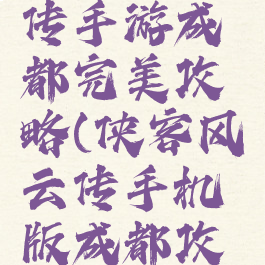 传手游成
都完美攻
略(侠客风
云传手机
版成都攻